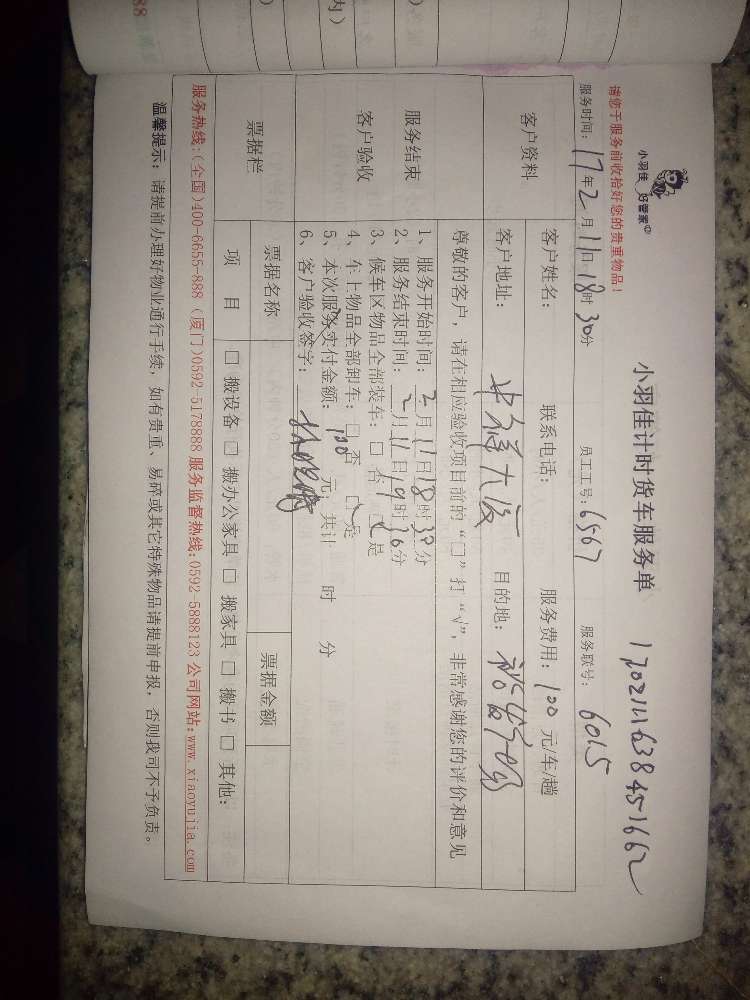 请您于服务前收拾好您的贵重物品!
小羽佳 好管家
小羽佳计时货车服务单
服务时间: 17年2月11日18时30分 员工工号: 6567 服务联号: 6015
客户资料
客户姓名: 联系电话: 服务费用: 100元/车/趟
客户地址: 目的地:
服务结束
客户验收
尊敬的客户，请在相应验收项目前的“□”打“√”，非常感谢您的评价和意见
1、服务开始时间: 2月11日18时38分
2、服务结束时间: 2月11日19时16分
3、候车区物品全部装车: □ 否 □ 是
4、车上物品全部卸车: □ 否 □ 是
5、本次服务实付金额: 100 元; 共计 时 分
6、客户验收签字:
票据栏
票据名称 票据金额
项 目 □ 搬设备 □ 搬办公家具 □ 搬家具 □ 搬书 □ 其他:
服务热线:(全国)400-6655-888 (厦门)0592-5178888 服务监督热线:0592-5888123 公司网站:www.xiaoyujia.com
温馨提示: 请提前办理好物业通行手续，如有贵重、易碎或其它特殊物品请提前申报，否则我司不予负责。